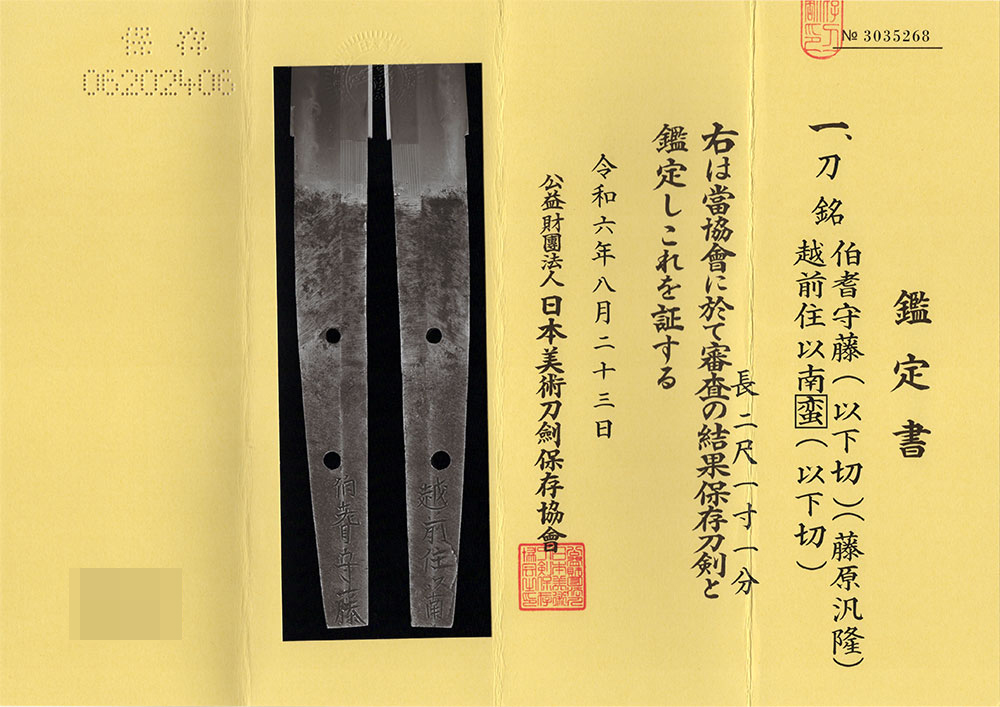 鑑定書
一、刀 銘 伯耆守藤(以下切)(藤原汎隆)
越前住以南蛮(以下切)
長二尺一寸一分
右は當協會に於て審査の結果保存刀剣と
鑑定しこれを証する
令和六年八月二十三日
公益財團法人 日本美術刀劍保存協會
№ 3035268
保存
06202406
越前住以南
伯耆守藤